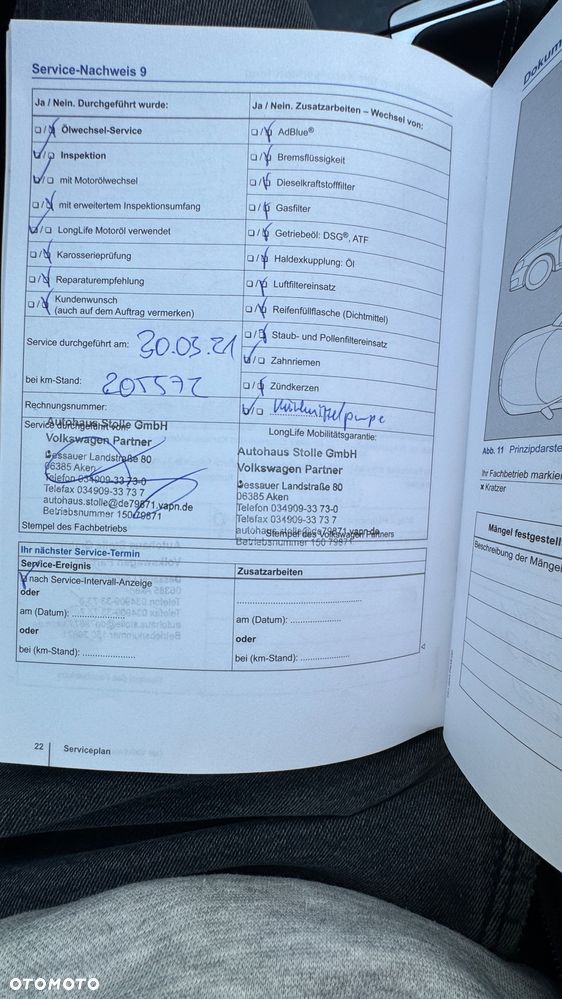 Service-Nachweis 9
Ja / Nein. Durchgeführt wurde:
❏/❏ Ölwechsel-Service
❏/❏ Inspektion
❏/❏ mit Motorölwechsel
❏/❏ mit erweitertem Inspektionsumfang
❏/❏ LongLife Motoröl verwendet
❏/❏ Karosserieprüfung
❏/❏ Reparaturempfehlung
❏/❏ Kundenwunsch
(auch auf dem Auftrag vermerken)
Service durchgeführt am: 30.03.21
bei km-Stand: 205572
Rechnungsnummer:
Service durchgeführt von:
Autohaus Stolle GmbH
Volkswagen Partner
Dessauer Landstraße 80
06385 Aken
Telefon 034909-33 73-0
Telefax 034909-33 73 7
autohaus.stolle@de79871.vapn.de
Betriebsnummer 150 79871
Stempel des Fachbetriebs
Ja / Nein. Zusatzarbeiten – Wechsel von:
❏/❏ AdBlue®
❏/❏ Bremsflüssigkeit
❏/❏ Dieselkraftstofffilter
❏/❏ Gasfilter
❏/❏ Getriebeöl: DSG®, ATF
❏/❏ Haldexkupplung: Öl
❏/❏ Luftfiltereinsatz
❏/❏ Reifenfüllflasche (Dichtmittel)
❏/❏ Staub- und Pollenfiltereinsatz
❏/❏ Zahnriemen
❏/❏ Zündkerzen
❏/❏ Kühlmittelpumpe
LongLife Mobilitätsgarantie:
Autohaus Stolle GmbH
Volkswagen Partner
Dessauer Landstraße 80
06385 Aken
Telefon 034909-33 73-0
Telefax 034909-33 73 7
autohaus.stolle@de79871.vapn.de
Stempel des Volkswagen Partners
Betriebsnummer 150 79871
Ihr nächster Service-Termin
Service-Ereignis
❏ nach Service-Intervall-Anzeige
oder
am (Datum): ....................
oder
bei (km-Stand): ....................
Zusatzarbeiten
am (Datum): ....................
oder
bei (km-Stand): ....................
22 Serviceplan
Abb. 11
Ihr Fachbetrieb
x Kratzer
Mängel
Beschreibung der
OTOMOTO